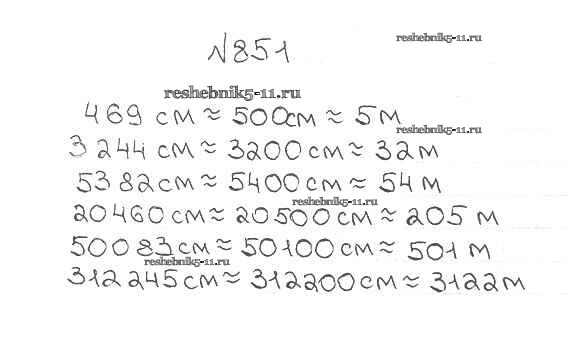 №851
reshebnik5-11.ru
reshebnik5-11.ru
469 см ≈ 500см ≈ 5м
reshebnik5-11.ru
3 244 см ≈ 3200 см ≈ 32м
5382см ≈ 5400 см ≈ 54 м
reshebnik5-11.ru
20460 см ≈ 20 500 см ≈ 205 м
50083 см ≈ 50100 см ≈ 501 м
reshebnik5-11.ru
312 245 см ≈ 312200 см ≈ 3122 м